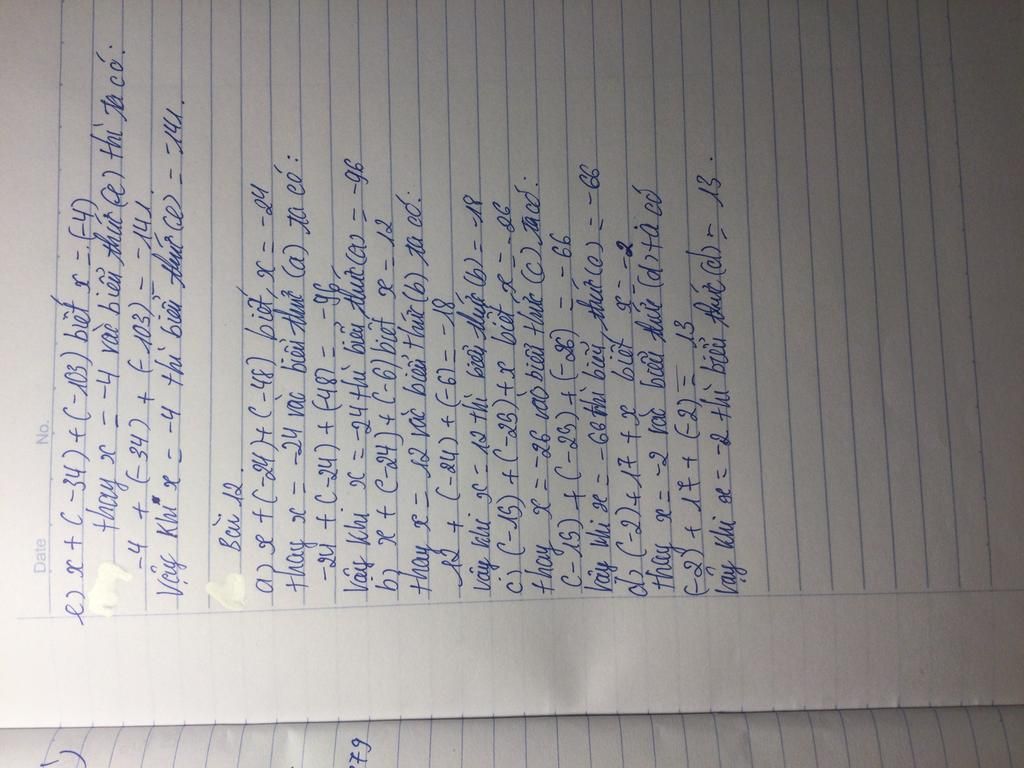 Date No.
e) x + (-34) + (-103) biết x = (-4)
thay x = -4 vào biểu thức (e) thì ta có:
-4 + (-34) + (-103) = -141.
Vậy khi x = -4 thì biểu thức (e) = -141.
Bài 12.
a) x + (-24) + (-48) biết x = -24
thay x = -24 vào biểu thức (a) ta có:
-24 + (-24) + (-48) = -96
Vậy khi x = -24 thì biểu thức (a) = -96
b) x + (-24) + (-6) biết x = 12
thay x = 12 vào biểu thức (b) ta có:
12 + (-24) + (-6) = -18
Vậy khi x = 12 thì biểu thức (b) = -18
c) (-15) + (-25) + x biết x = -26
thay x = -26 vào biểu thức (c) ta có:
(-15) + (-25) + (-26) = -66
Vậy khi x = -66 thì biểu thức (c) = -66
d) (-2) + 17 + x biết x = -2
thay x = -2 vào biểu thức (d) ta có
(-2) + 17 + (-2) = 13
Vậy khi x = -2 thì biểu thức (d) = 13.
779